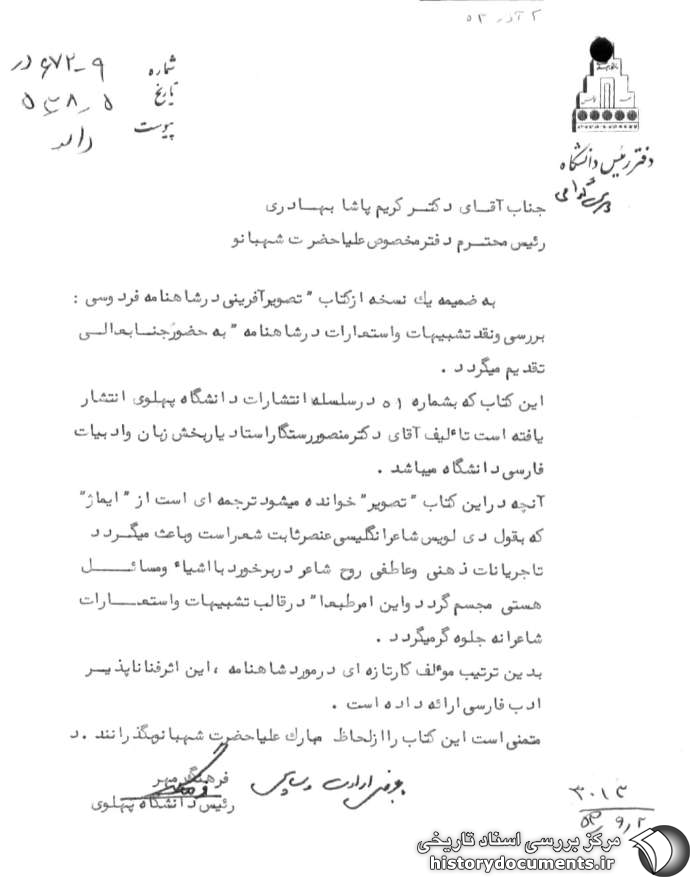 ۲ آذر ۵۳
شماره ۶۷۲-۹ در
تاریخ ۵-۸-۵۳
پیوست دارد
دفتر رئیس دانشگاه
جناب آقای دکتر کریم پاشا بهادری
رئیس محترم دفتر مخصوص علیاحضرت شهبانو
به ضمیمه یك نسخه از کتاب "تصویرآفرینی در شاهنامه فردوسی :
بررسی ونقد تشبیهات واستعارات در شاهنامه" به حضور جنابعالی
تقدیم میگردد .
این کتاب که بشماره ۵۱ در سلسله انتشارات دانشگاه پهلوی انتشار
یافته است تاٴلیف آقای دکتر منصور رستگار استادیار بخش زبان وادبیات
فارسی دانشگاه میباشد .
آنچه در این کتاب "تصویر" خوانده میشود ترجمه ای است از "ایماژ"
که بقول دی لویس شاعر انگلیسی عنصر ثابت شعر است وباعث میگردد
تا جریانات ذهنی وعاطفی روح شاعر در برخورد با اشیاء ومسائل
هستی مجسم گردد واین امر طبعا" در قالب تشبیهات واستعارات
شاعرانه جلوه گر میگردد .
بدین ترتیب موٴلف کار تازه ای در مورد شاهنامه ، این اثر فناناپذیر
ادب فارسی ارائه داده است .
متمنی است این کتاب را از لحاظ مبارك علیاحضرت شهبانو بگذرانند .د
با عرض ارادت و سپاس
فرهنگ مهر
رئیس دانشگاه پهلوی
۳۰۱۴
۵۳/۹/۲
مرکز بررسی اسناد تاریخی
historydocuments.ir